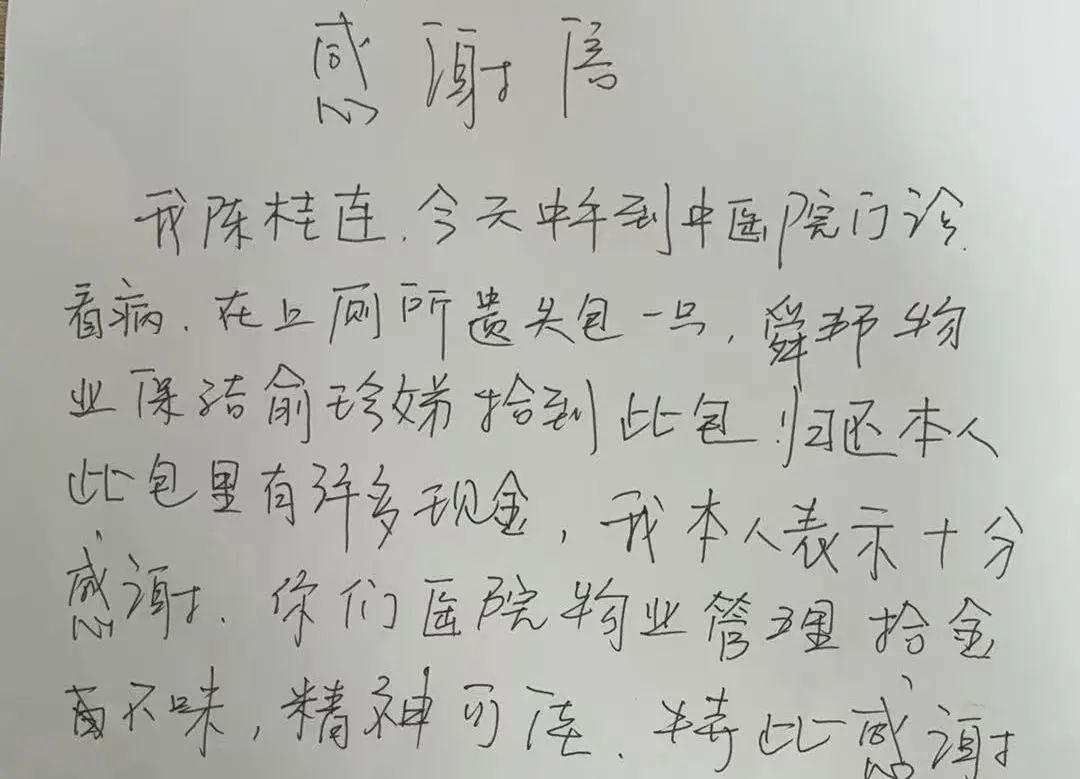 感谢信
我陈桂连.今天中午到中医院门诊
看病.在上厕所遗失包一只,舜邦物
业保洁俞珍娣拾到此包.归还本人
此包里有许多现金,我本人表示十分
感谢.你们医院物业管理拾金
不昧,精神可佳.特此感谢